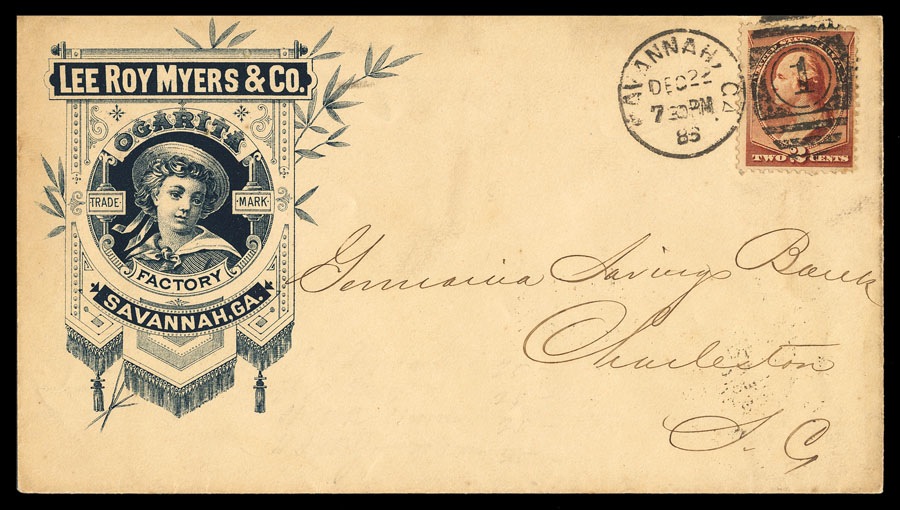 LEE ROY MYERS & CO.
OGARITA
TRADE MARK
FACTORY
SAVANNAH, GA.
SAVANNAH, GA.
DEC 22
7 30PM
86
1
TWO 2 CENTS
Germania Savings Bank
Charleston
S. C